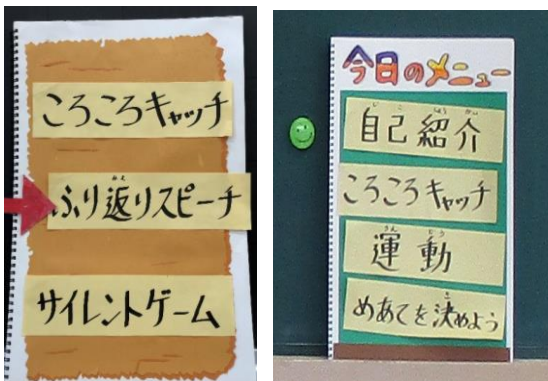 ころころキャッチ
ふり返りスピーチ
サイレントゲーム
今日のメニュー
自己紹介
ころころキャッチ
運動
めあてを決めよう